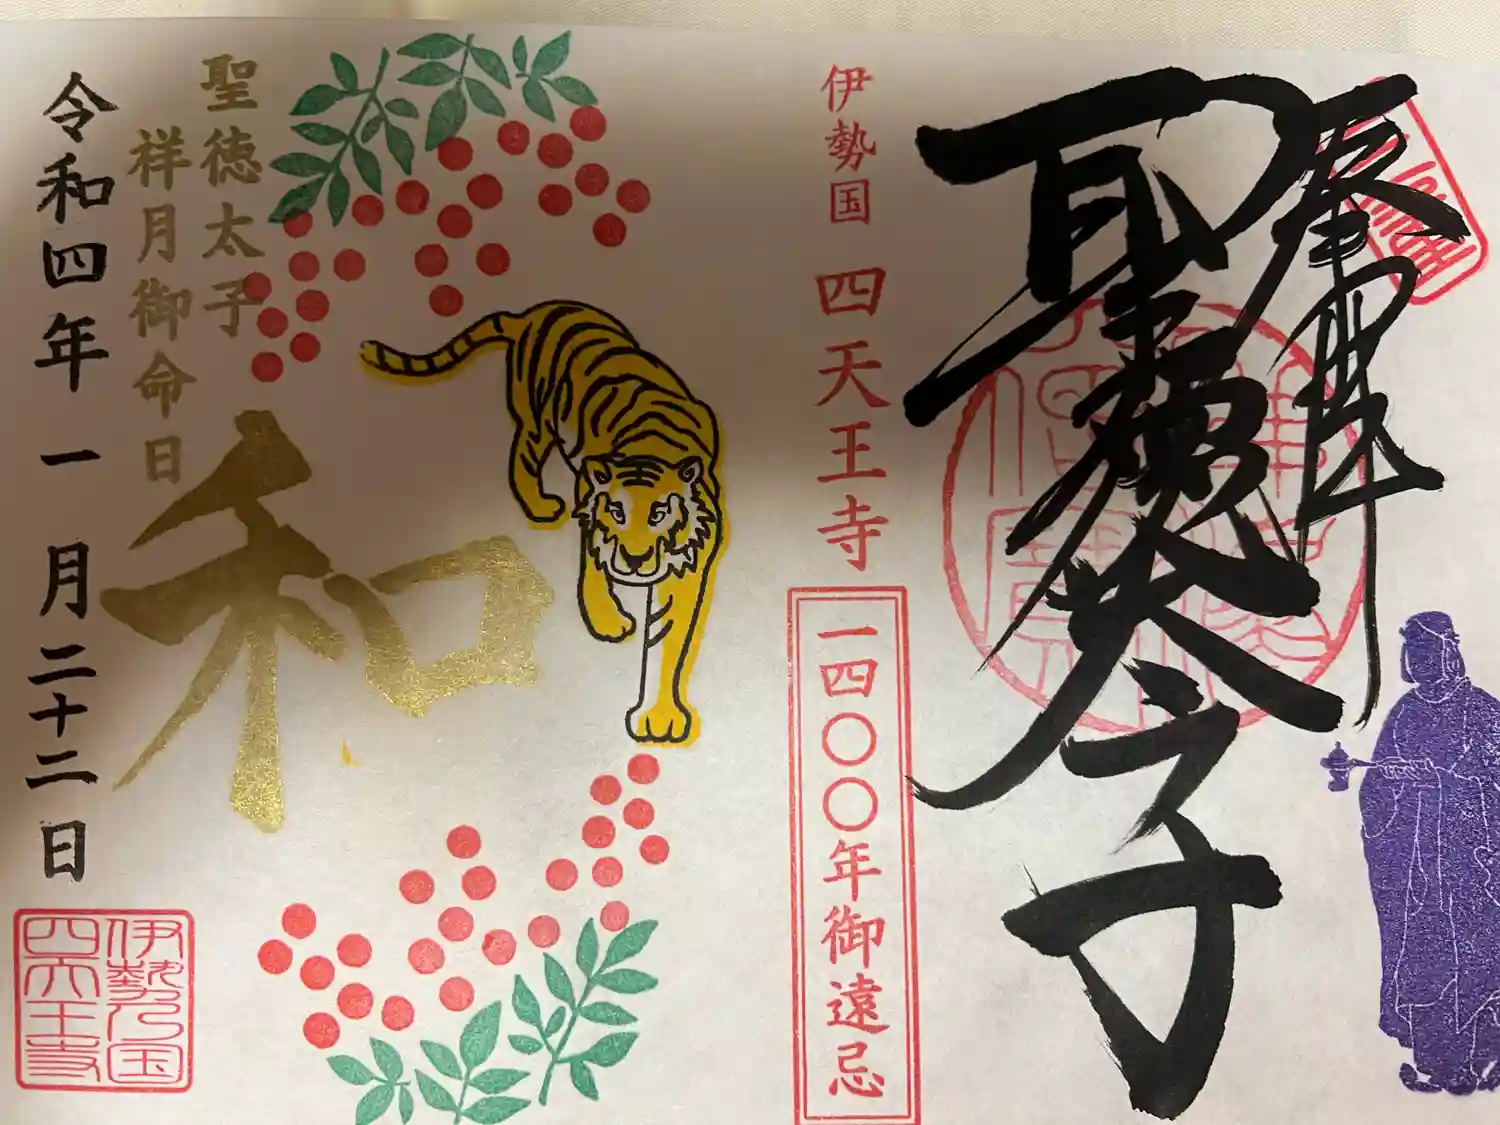 奉拝
聖徳太子
伊勢国 四天王寺
一四〇〇年御遠忌
聖徳太子
祥月御命日
和
令和四年 一月二十二日
伊勢乃国
四天王寺